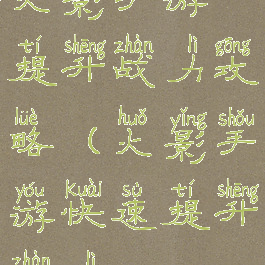 火影手游
tí shēng zhàn lì gōng
提升战力攻
lüè huǒ yǐng shǒu
略（火影手
yóu kuài sù tí shēng
游快速提升
zhàn lì